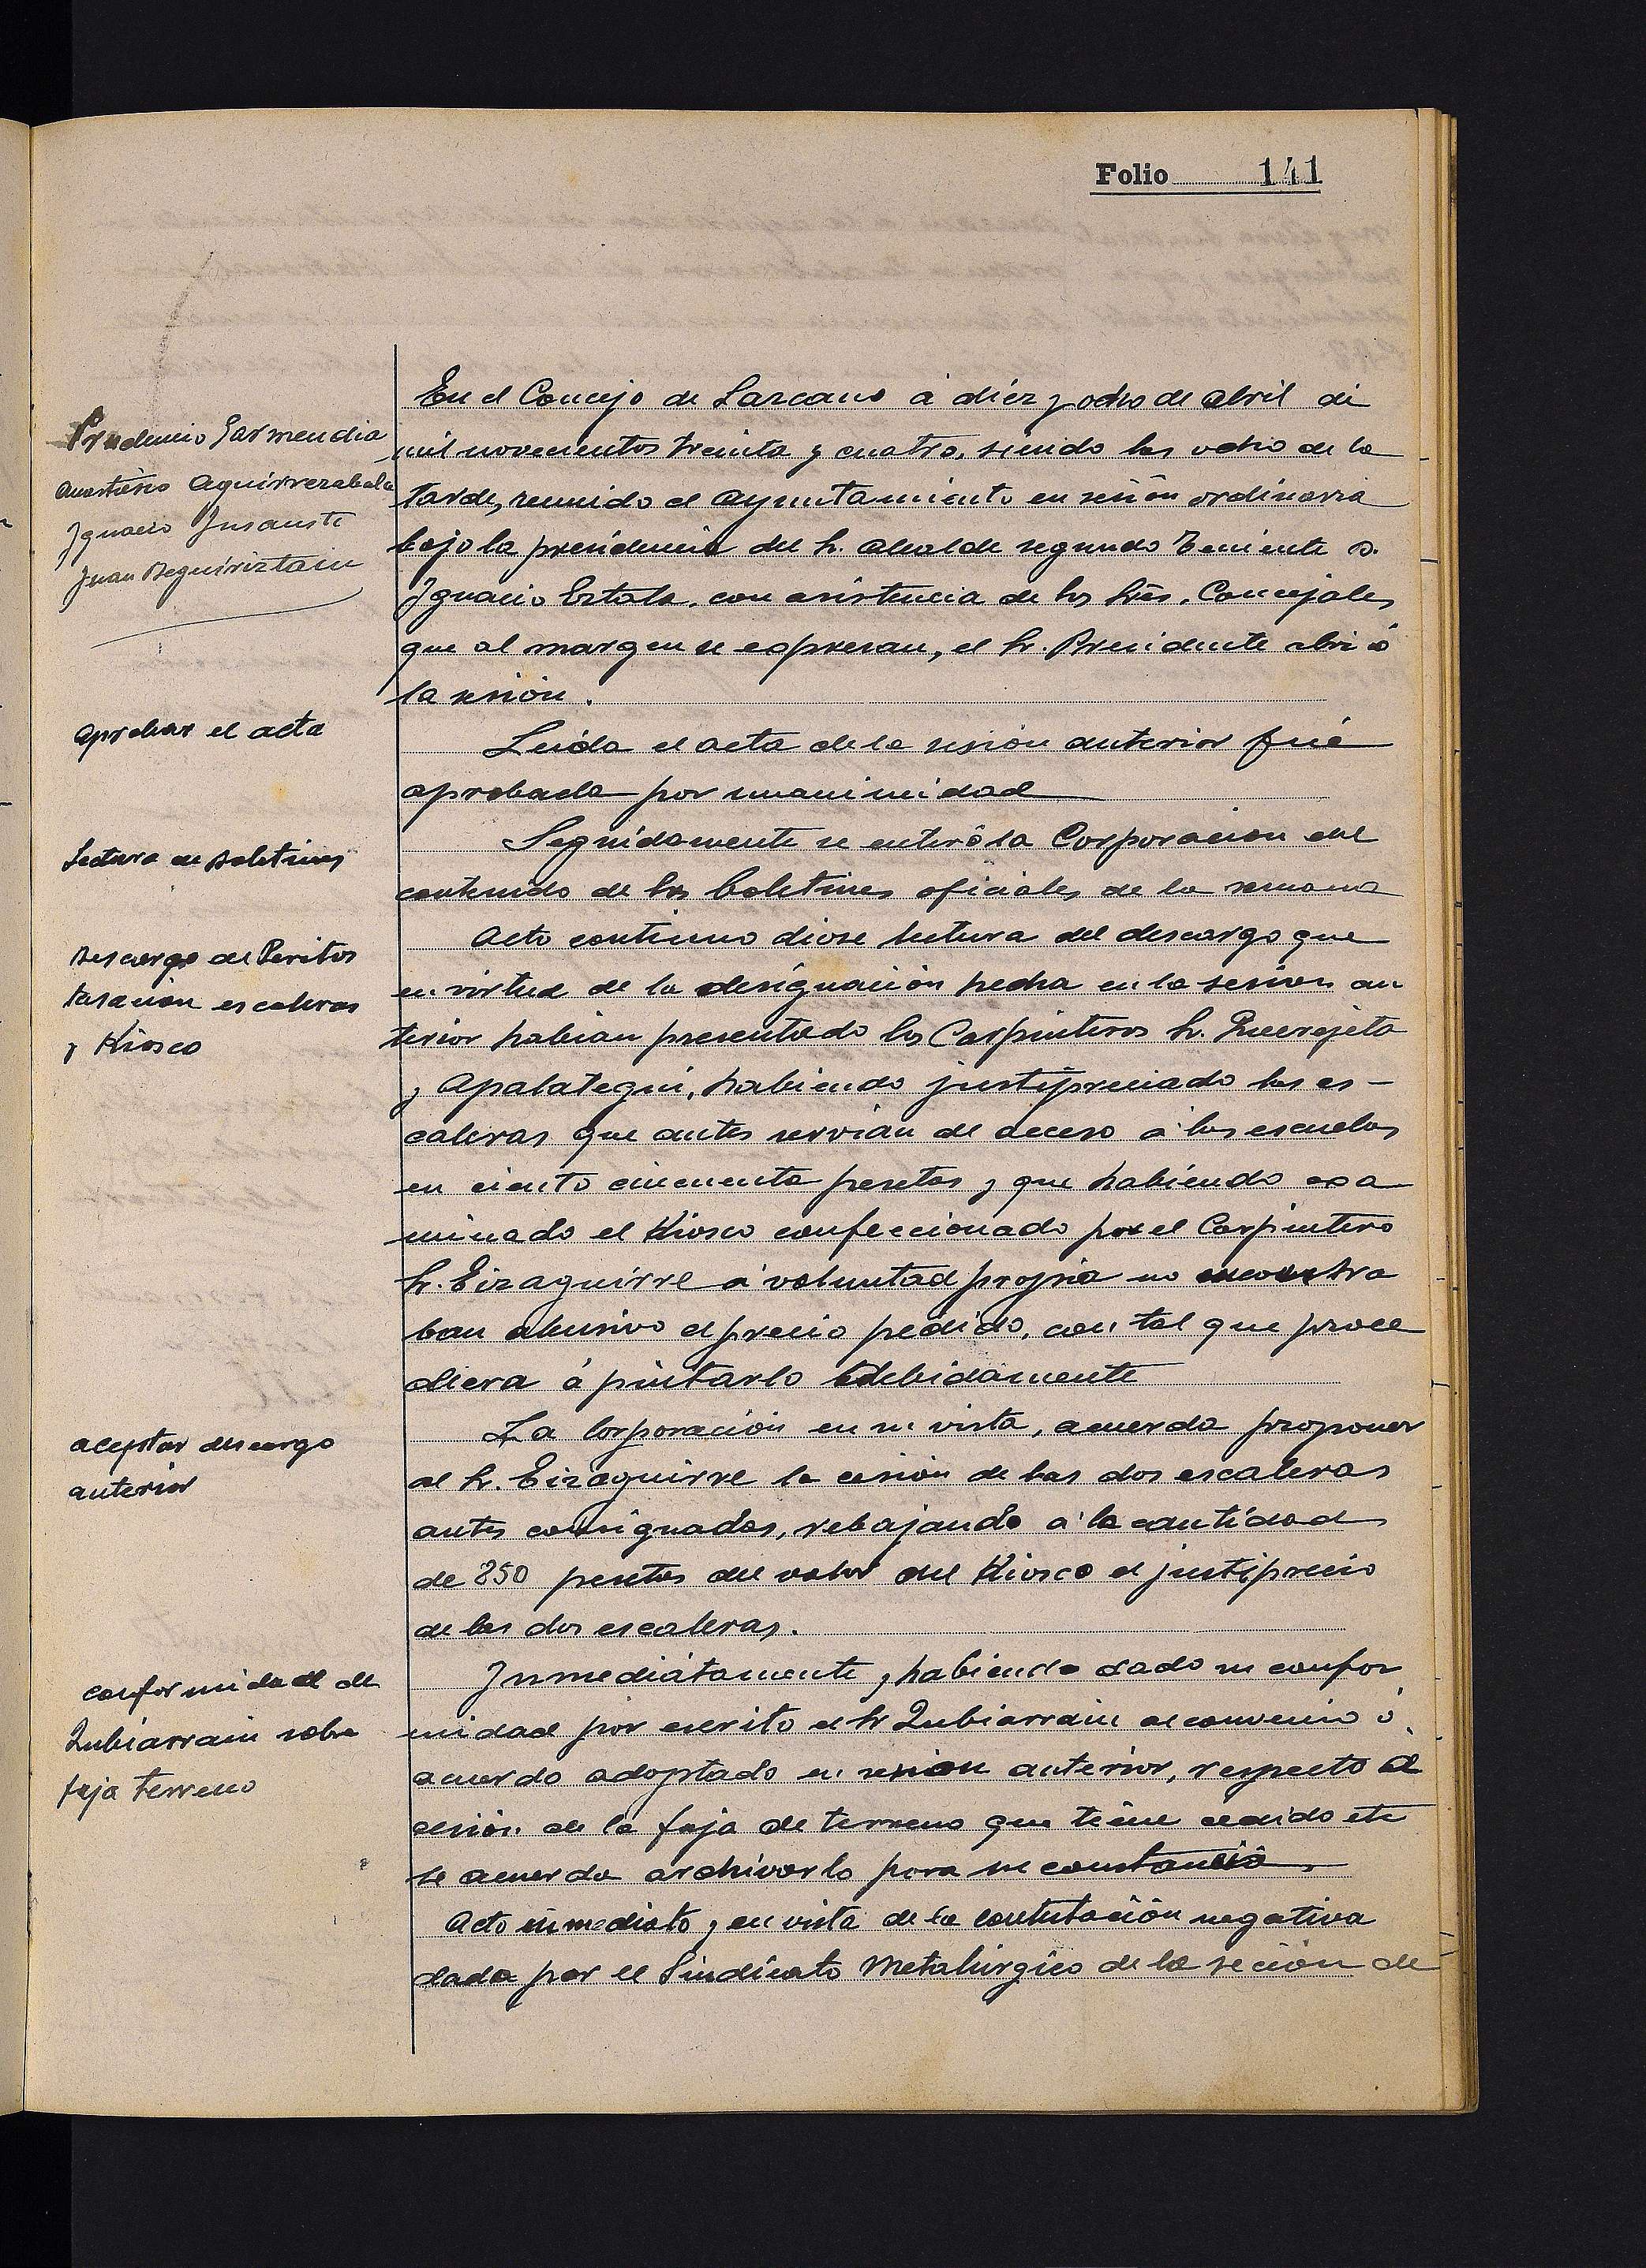 Folio 141
Prudencio Garmendia
Anastasio Aguirrezabala
Ignacio Insausti
Juan Beguiristain
En el Concejo de Lazcano á diez y ocho de abril de
mil novecientos treinta y cuatro, siendo las ocho de la
tarde, reunido el Ayuntamiento en sesión ordinaria
bajo la presidencia del Sr. Alcalde segundo Teniente D.
Ignacio Estala, con asistencia de los Srs. Concejales
que al margen se expresan, el Sr. Presidente abrió
la sesión.
Aprobar el acta
Leida el acta de la sesión anterior fué
aprobada por unanimidad
Lectura de Boletines
Seguidamente se enteró la Corporación del
contenido de los boletines oficiales de la semana
Descargo de Peritos
tasación escaleras
y Kiosco
Acto continuo diose lectura del descargo que
en virtud de la designación hecha en la sesión an
terior habian presentado los Carpinteros Sr. Querejeta
y Apalategui, habiendo justipreciado las es-
caleras que antes servian de acceso á las escuelas
en ciento cincuenta pesetas y que habiendo exa
minado el Kiosco confeccionado por el Carpintero
Sr. Eizaguirre á voluntad propia no encontra
ban abusivo el precio pedido, con tal que proce
diera á pintarlo debidamente
aceptar descargo
anterior
La Corporación en su vista, acuerda proponer
al Sr. Eizaguirre la cesión de las dos escaleras
antes consignadas, rebajando á la cantidad
de 850 pesetas del valor del Kiosco el justiprecio
de las dos escaleras.
conformidad de
Zubiarrain sobre
faja terreno
Inmediatamente y habiendo dado su confor
midad por escrito el Sr Zubiarrain al convenio ó
acuerdo adoptado en sesion anterior, respecto á
cesión de la faja de terreno que tiene cedido etc
se acuerda archivarlo para su constancia,
Acto inmediato y en vista de la contestación negativa
dada por el Sindicato Metalúrgico de la seción de